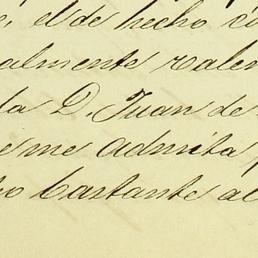 el de hecho co
almente valer
da D. Juan de
e me admita
ho bastante al